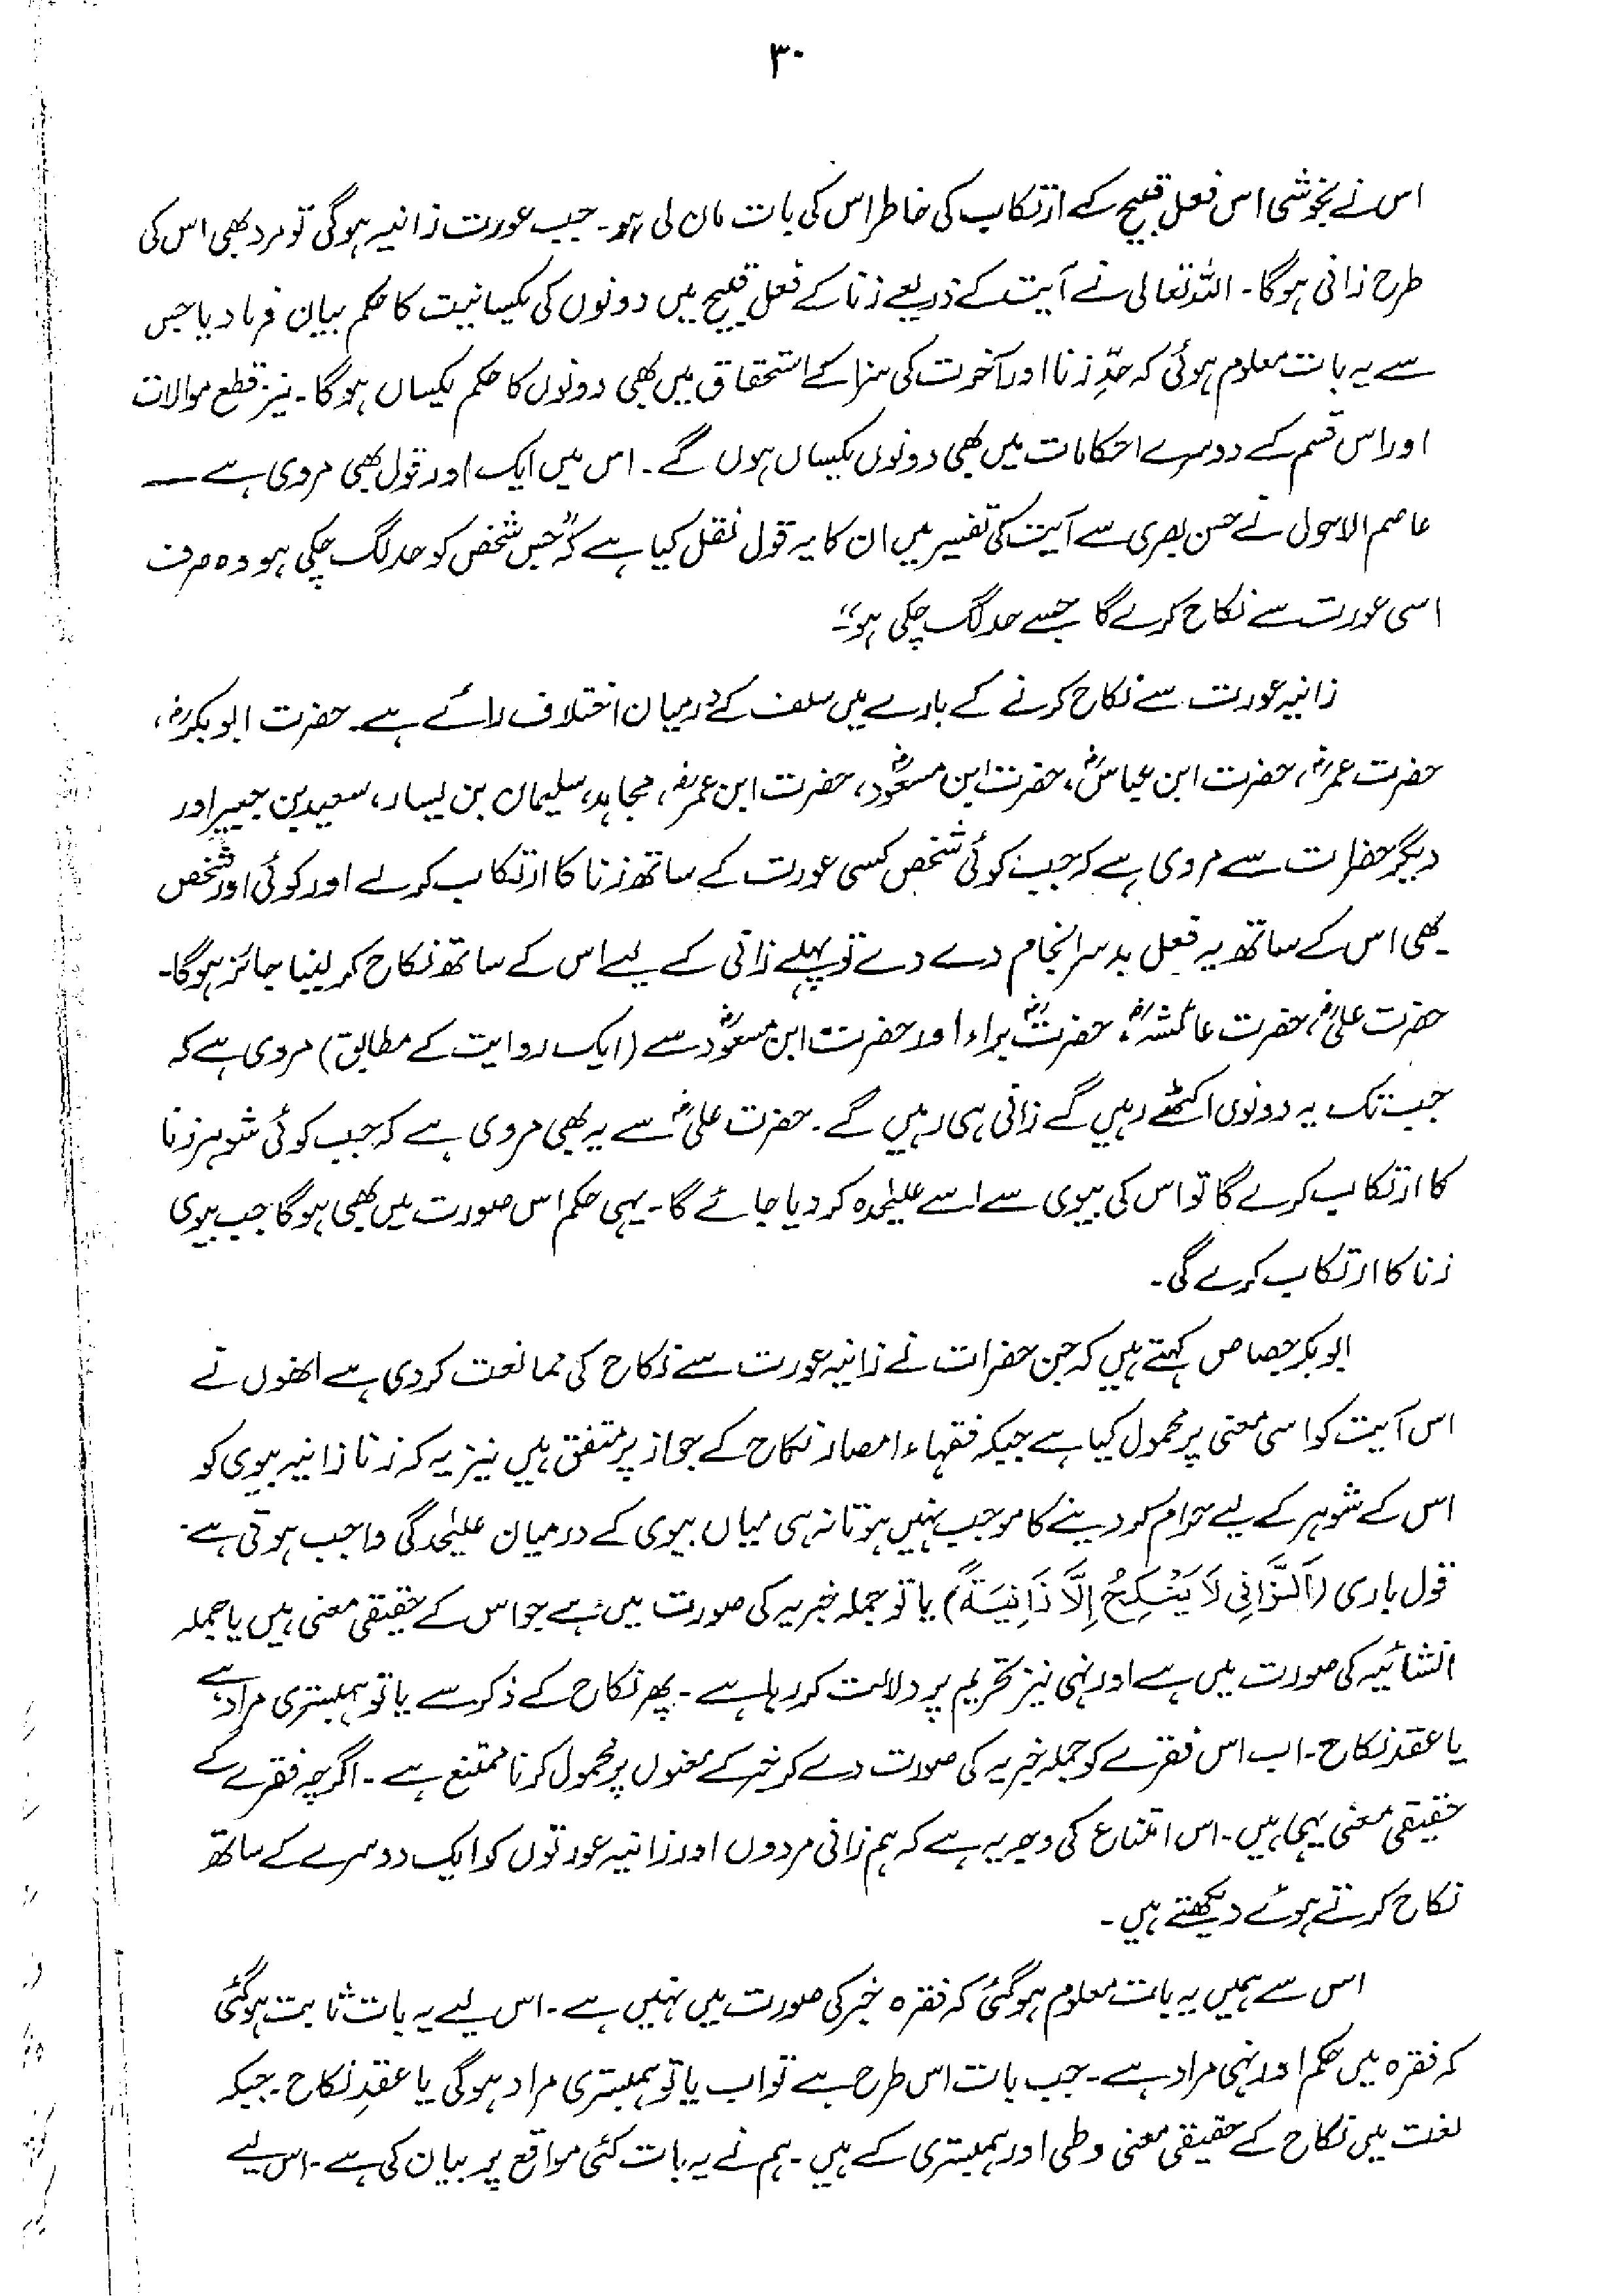 ۳۰
اس نے بخوشی اس فعل قبیح کے ارتکاب کی خاطر اس کی بات مان لی ہو۔ جب عورت زانیہ ہوگی تو مرد بھی اس کی
طرح زانی ہوگا۔ اللہ تعالیٰ نے آیت کے ذریعے زنا کے فعل قبیح میں دونوں کی یکسانیت کا حکم بیان فرما دیا جس
سے یہ بات معلوم ہوئی کہ حدِّ زنا اور آخرت کی سزا کے استحقاق میں بھی دونوں کا حکم یکساں ہوگا۔ نیز قطع موالات
اور اس قسم کے دوسرے احکامات میں بھی دونوں یکساں ہوں گے۔ اس میں ایک اور قول بھی مروی ہے —
عاصم الاحول نے حسن بصری سے آیت کی تفسیر میں ان کا یہ قول نقل کیا ہے کہ "جس شخص کو حد لگ چکی ہو وہ صرف
اسی عورت سے نکاح کرے گا جسے حد لگ چکی ہو"۔
زانیہ عورت سے نکاح کرنے کے بارے میں سلف کے درمیان اختلاف رائے ہے۔ حضرت ابوبکرؓ،
حضرت عمرؓ، حضرت ابن عباسؓ، حضرت ابن مسعودؓ، حضرت ابن عمرؓ، مجاہد، سلیمان بن یسار، سعید بن جبیر اور
دیگر حضرات سے مروی ہے کہ جب کوئی شخص کسی عورت کے ساتھ زنا کا ارتکاب کرلے اور کوئی اور شخص
بھی اس کے ساتھ یہ فعل بد سرانجام دے دے تو پہلے زانی کے لیے اس کے ساتھ نکاح کر لینا جائز ہوگا۔
حضرت علیؓ، حضرت عائشہؓ، حضرتؓ براء اور حضرت ابن مسعودؓ سے (ایک روایت کے مطابق) مروی ہے کہ
جب تک یہ دونوں اکٹھے رہیں گے زانی ہی رہیں گے۔ حضرت علیؓ سے یہ بھی مروی ہے کہ جب کوئی شوہر زنا
کا ارتکاب کرے گا تو اس کی بیوی سے اسے علیٰحدہ کر دیا جائے گا۔ یہی حکم اس صورت میں بھی ہوگا جب بیوی
زنا کا ارتکاب کرے گی۔
ابوبکر جصاص کہتے ہیں کہ جن حضرات نے زانیہ عورت سے نکاح کی ممانعت کردی ہے انھوں نے
اس آیت کو اسی معنی پر محمول کیا ہے جبکہ فقہاء امصار نکاح کے جواز پر متفق ہیں نیز یہ کہ زنا زانیہ بیوی کو
اس کے شوہر کے لیے حرام کر دینے کا موجب نہیں ہوتا نہ ہی میاں بیوی کے درمیان علیٰحدگی واجب ہوتی ہے۔
قول باری (اَلزَّانِی لَا یَنْکِحُ اِلَّا زَانِیَةً) یا تو جملہ خبریہ کی صورت میں ہے جو اس کے حقیقی معنی ہیں یا جملہ
انشائیہ کی صورت میں ہے اور نہی نیز تحریم پر دلالت کر رہا ہے۔ پھر نکاح کے ذکر سے یا تو ہمبستری مراد ہے
یا عقد نکاح۔ اب اس فقرے کو جملہ خبریہ کی صورت دے کر خبر کے معنوں پر محمول کرنا ممتنع ہے۔ اگرچہ فقرے کے
حقیقی معنی یہی ہیں۔ اس امتناع کی وجہ یہ ہے کہ ہم زانی مردوں اور زانیہ عورتوں کو ایک دوسرے کے ساتھ
نکاح کرتے ہوئے دیکھتے ہیں۔
اس سے ہمیں یہ بات معلوم ہوگئی کہ فقرہ خبر کی صورت میں نہیں ہے۔ اس لیے یہ بات ثابت ہوگئی
کہ فقرہ میں حکم اور نہی مراد ہے۔ جب بات اس طرح ہے تو اب یا تو ہمبستری مراد ہوگی یا عقدِ نکاح۔ جبکہ
لغت میں نکاح کے حقیقی معنی وطی اور ہمبستری کے ہیں۔ ہم نے یہ بات کئی مواقع پر بیان کی ہے۔ اس لیے